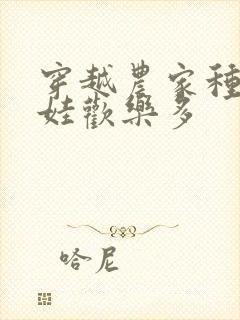 穿越農家種
娃歡樂多
哈尼